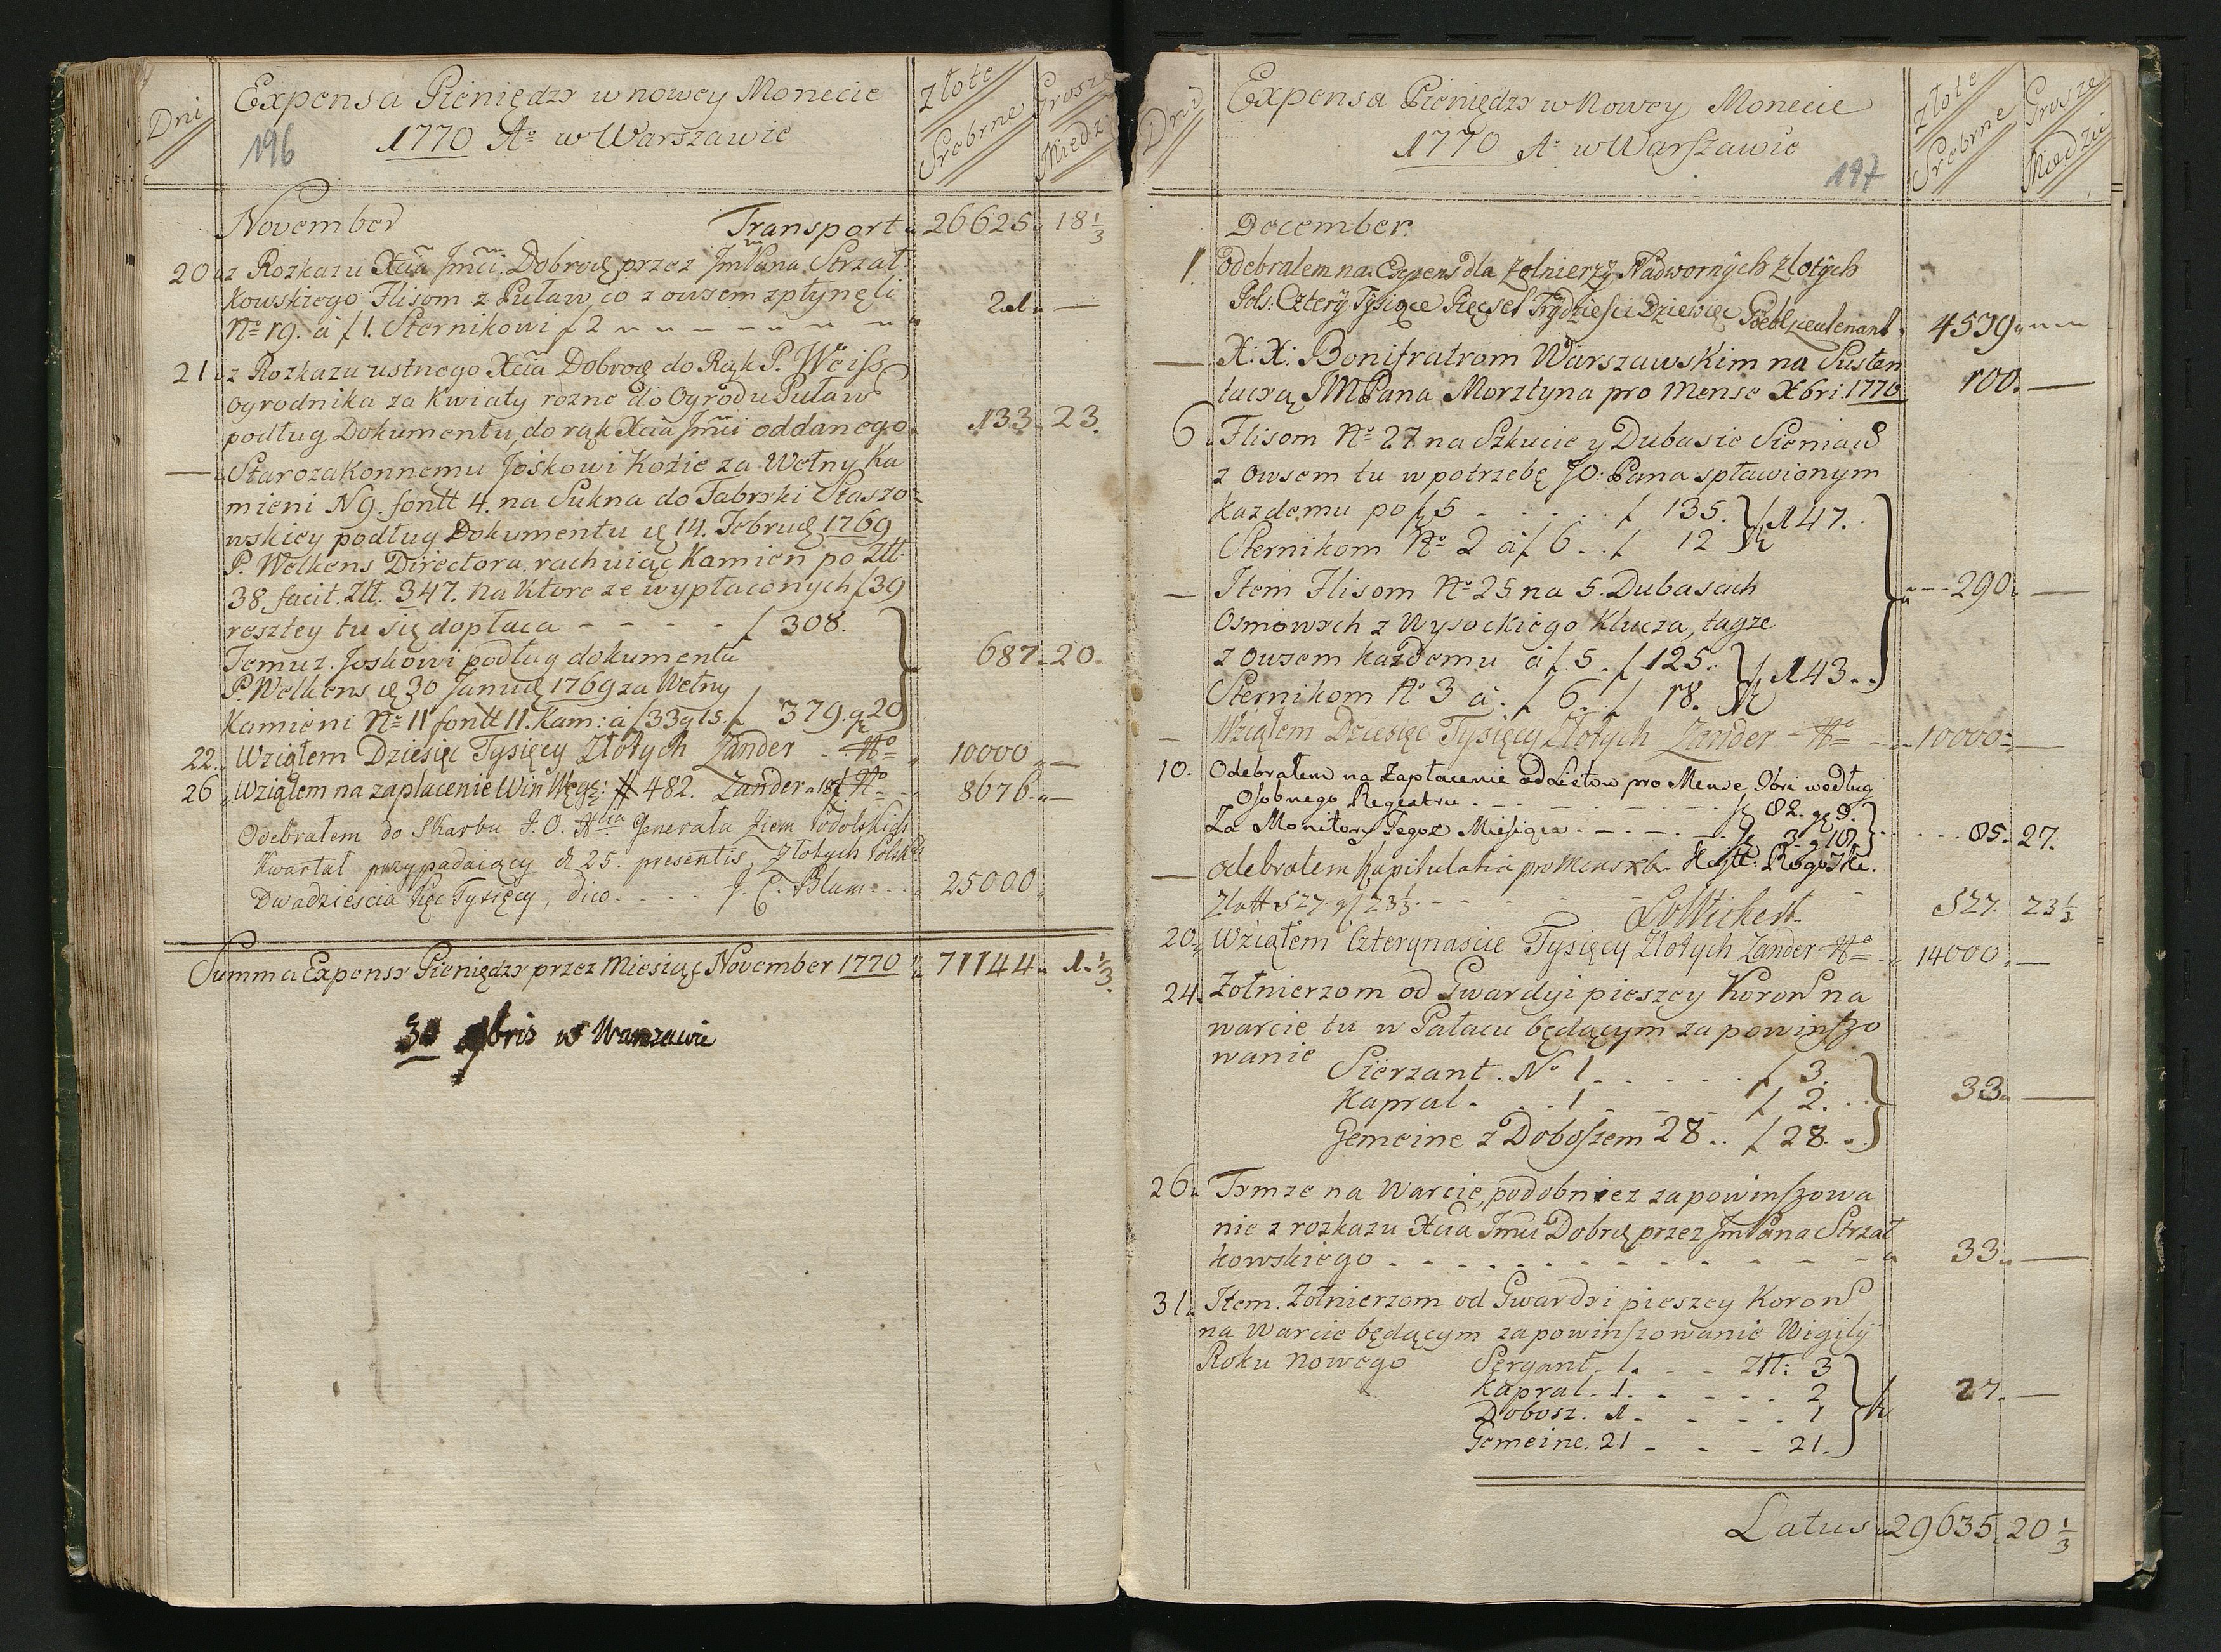 Dni
Expensa Pieniędzy w nowey Monecie
1770 Aº w Warszawie
196
Złote Srebrne
Grosze Miedzi
November Transport 26625. 18 1/3
20 z Rozkazu Xcia Jmci Dobrod przez JmPana Strzał
kowskiego Flisom z Puław, co z owsem zpłynęli
Nº 19. á f 1. Sternikowi f 2 21. —
21 z Rozkazu ustnego Xcia Dobrod do Rąk P. Weiss
ogrodnika za Kwiaty rozne do Ogrodu Puław
podług Dokumentu, do rąk Xcia Jmci oddanego. 133. 23.
— Starozakonnemu Joskowi Kozie za Wełny Ka
mieni N 9. fontt 4. na Sukna do Fabryki Staszo
wskiey podług Dokumentu 14. Februa 1769
P. Welkens Directora. rachuiąc Kamien po Ztt.
38. facit. Ztt. 347. na Ktore ze wypłaconych f 39
resztey tu się dopłaca - - - - f 308.
Temuz. Joskowi podług dokumentu
P. Welkens 30 Janua 1769 za Wełny 687. 20.
Kamieni Nº 11 fontt 11. Kam: á f 33 g 15. f 379. g 20
22. Wziąłem Dziesięc Tysięcy Złotych Zander 10000 —
26 Wziąłem na zapłacenie Win Węgr: # 482. Zander a 18 f 8676. —
Odebrałem do Skarbu J. O. Xcia Generała Ziem Podolskich
Kwartał przypadaiący d 25. presentis, Złotych Polskich
Dwadziescia Pięc Tysięcy, dico. . . . J. C. Blum 25000.
Summa Expensy Pieniędzy przez Miesiąc November 1770 71144. 1. 1/3.
30 9bris w Warszawie
Dni
Expensa Pieniędzy w Nowey Monecie
1770 Aº w Warszawie
197
Złote Srebrne
Grosze Miedzie
December.
1. Odebralem na Expens dla Zolnierzy Nadwornych Zlotych
Pols: Cztery Tysiące Pięcset Trydziesci Dziewięc Lieutenant 4539
— X: X: Bonifratrom Warszawskim na Susten
tacyą JMPana Morztyna pro Mense Xbri. 1770 100. —
6. Flisom Nº 27. na Szkucie y Dubasie Sieniaw
z Owsem tu w potrzebę JO: Pana spławionym
Kazdemu po f 5 - . . . . f 135. f 147.
Sternikom Nº 2 á f 6. . f 12
— Item Flisom Nº 25 na 5. Dubasach 290. —
Osmowych z Wysockiego Klucza, tagze
z owsem Kazdemu á f 5. f 125. f 143.
Sternikom Nº 3 a. f 6. f 18.
— Wziąłem Dziesięc Tysięcy Złotych Zander 10000 —
10. Odebrałem na Zapłacenie od Listow pro Mense 9bri według
Osobnego Regestru. f 82. g 9.
Za Monitory Tegoz Miesiąca. f 3. g 18. 85. 27.
— odebrałem Kapitulatia pro Mense Xbr.
Zlott 527. g 23 1/3. 527. 23 1/3
20. Wziąłem Czterynascie Tysięcy Złotych Zander 14000. —
24. Zołnierzom od Gwardyi pieszey Koron na
warcie tu w Pałacu będącym za powinszo
wanie Sierzant. Nº 1. . . . . f 3.
Kapral. . . 1 f 2. 33. —
Gemeine z Doboszem 28. . f 28.
26. Tymze na Warcie, podobniez za powinszowa
nie z rozkazu Xcia Jmci Dobrd przez JmPana Strzał
kowskiego 33. —
31. Item. Zołnierzom od Gwardyi pieszey Koron
na warcie będącym za powinszowanie Wigilij
Roku Nowego Sergant. 1. . - Ztt: 3
Kapral. 1. 2 27. —
Dobosz. 1. 1
Gemeine. 21 - - - 21.
Latus 29635. 20 1/3